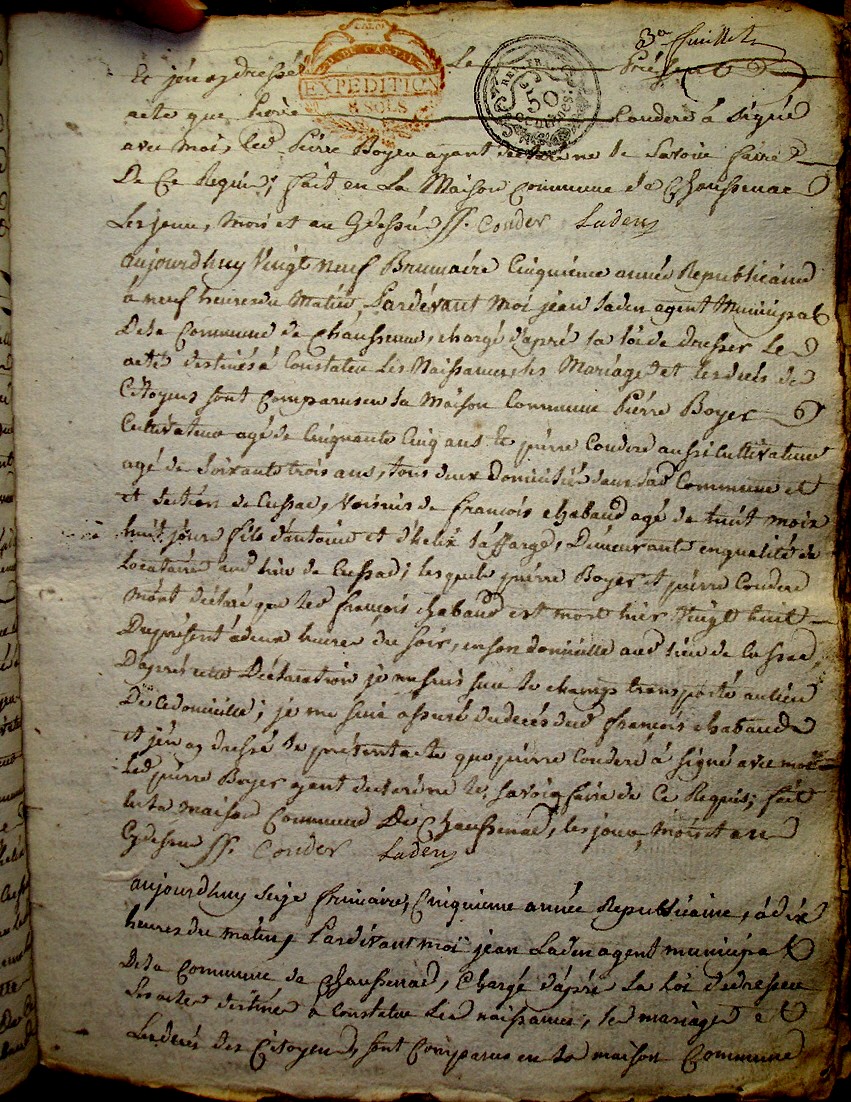 3e feuillet
CAL
DU CANTAL
EXPEDITION
8 SOLS
50
CENTIMES
Et j'en ay dressé Le Présent
acte que Pierre Couderc à signé
avec moi, led Pierre Boyer ayant declaré ne le savoir faire
De Ce Requis; fait en La Maison Commune de Chaussenac
Les jour, mois et an Cydessus ff. Couder Laden
aujourdhuy Vingt neuf Brumaire Cinquieme année Republicaine
à neuf heures du Matin, Pardevant moi jean Laden agent Municipal
De la Commune de Chaussenac, chargé d'apré la loi de dresser Le
actes destinés à Constater Les Naissances, les Mariages et les decés de
Citoyens sont Comparus en la Maison Commune Pierre Boyer
Cultivateur agé de Cinquante Cinq ans et pierre Couderc aussi Cultivateur
agé de Soixante trois ans, tous deux domiciliés dans lad Commune et
et section de Cussac, Voisins de François chabaud agé de huit mois
huit jours fils d'antoine et d'helix Laffarge, Demeurants en qualité de
Locataire aud lieu de Cussac; lesquels pierre Boyer et pierre Couderc
m'ont déclaré que led françois chabaud est mort hier Vingt huit
Du présent à deux heures du soir, en son domicille aud lieu de Cussac,
D'après cette Déclaration je me suis sur le champs transporté au lieu
De Ce domicille; je me suis assuré du decés dud françois chabaud
et j'en ay dressé le présent acte que pierre Couderc à signé avec moi
Led pierre Boyer ayant declaré ne le savoir faire de Ce Requis; fait
en la maison Commune De Chaussenac, les jour, mois et an
Cydessus ff. Couder Laden
aujourdhuy seize frimaire, Cinquieme année Republicaine, à dix
heures du matin, Pardevant moi jean Laden agent municipal
De la Commune de Chaussenac, Chargé d'apré La loi de dresser
Les actes destinés à Constater Les naissances, les mariages et
Les decés des Citoyens, sont Comparus en la maison Commune